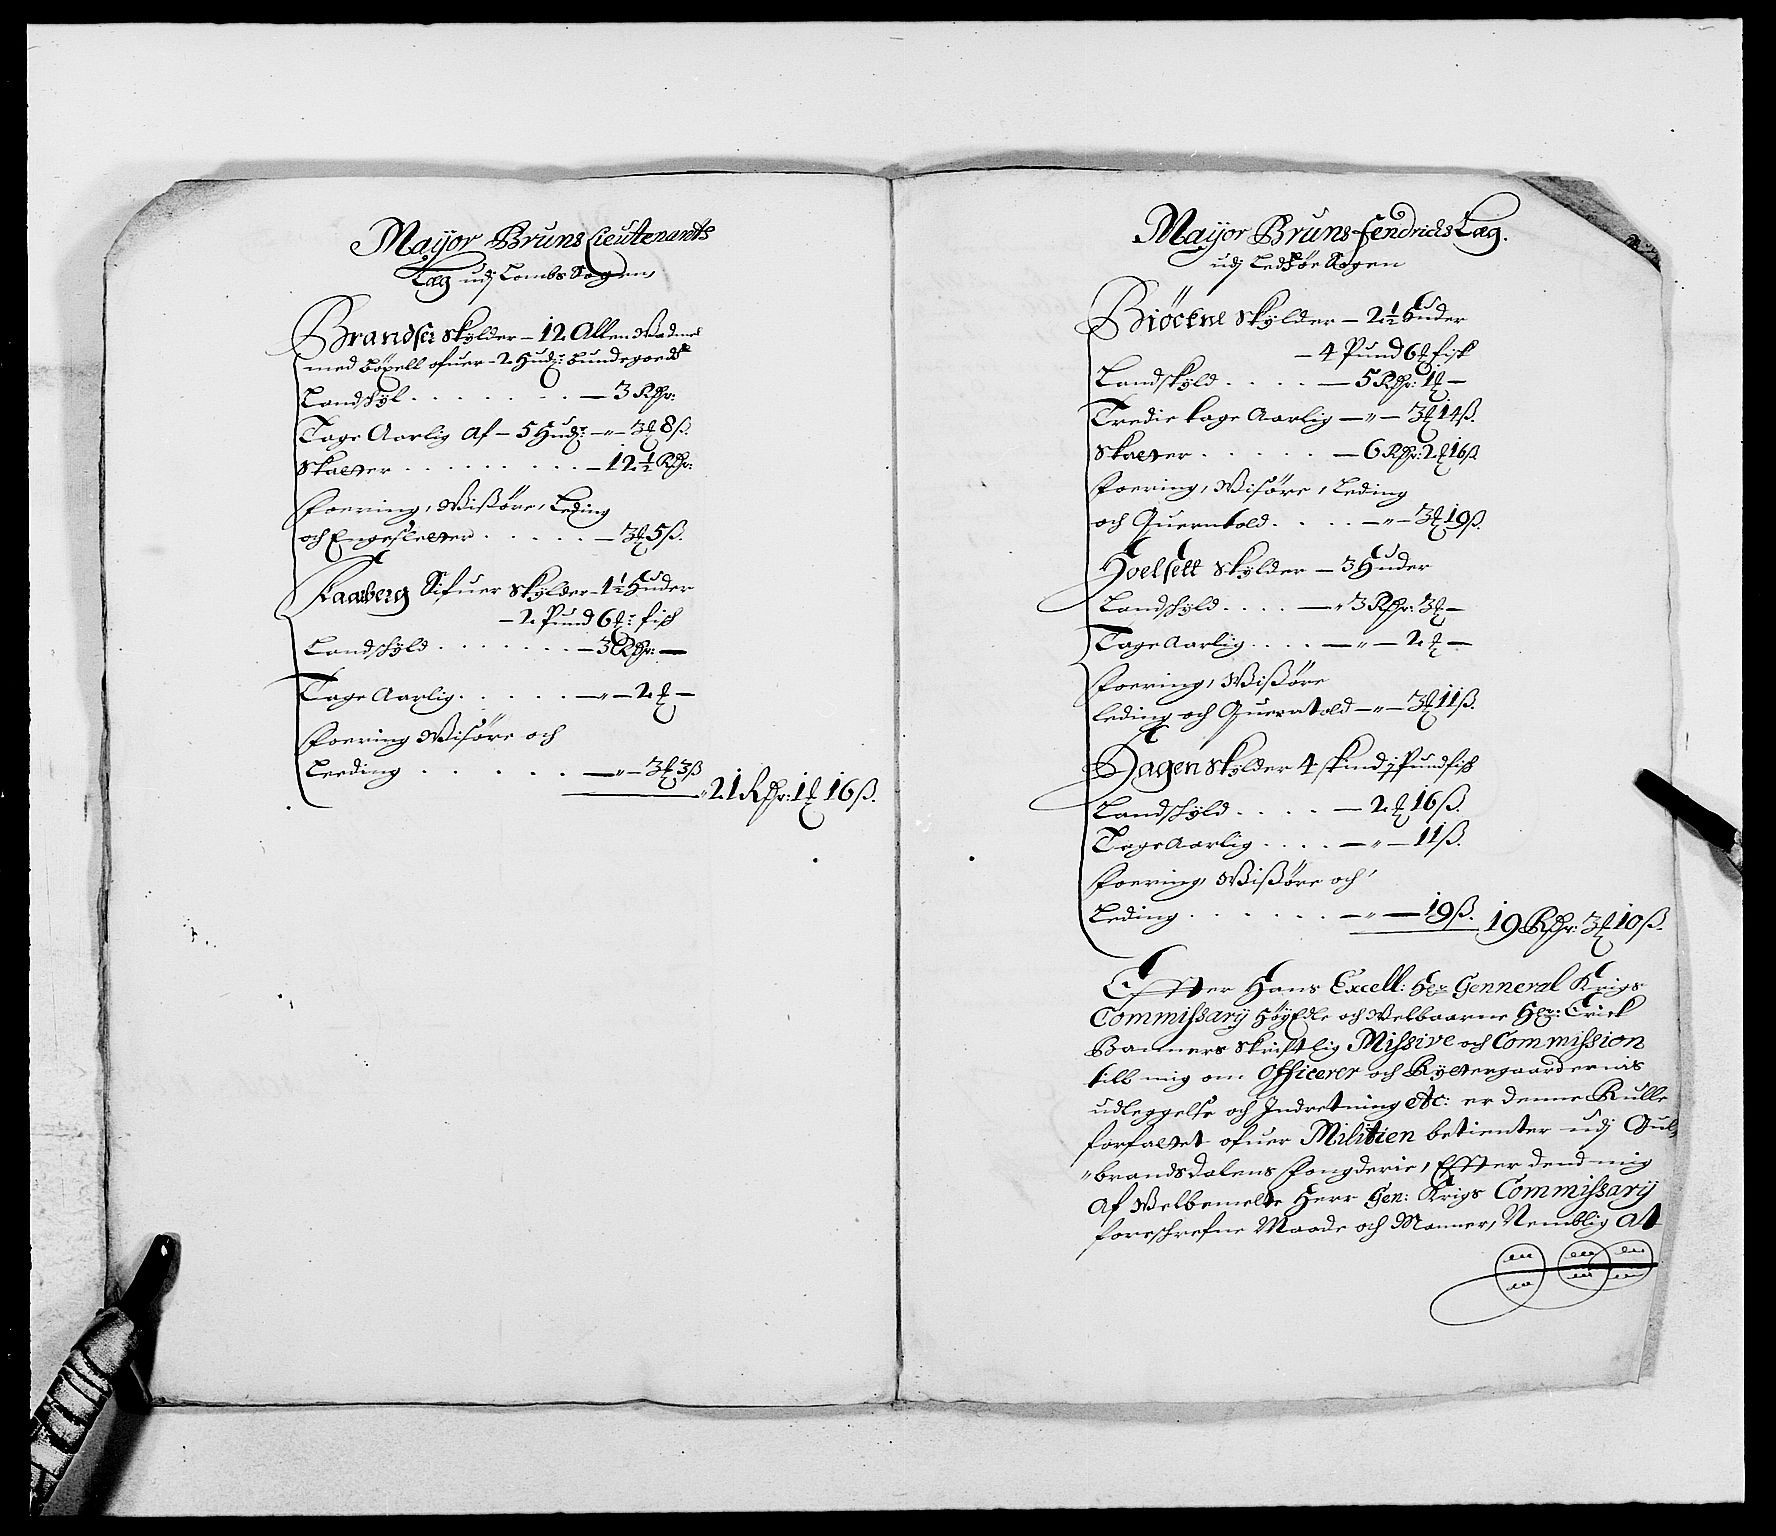 Mayor Bruns Lieutenants
Læg udj Lombs Sogen
Brandset skylder – 12 Allen Wadmel
med Bøxell ofuer – 2 Hud: bundegoeds
Landskyl . . . . . . . . – 3 Rdr:
Tage Aarlig Af – 5 Hud: – „ – 3 ₰ 8 ß.
Skatter . . . . . . . . . – 12 ½ Rdr:
Foering, Wißøre, Leding
och Engesletter . . . . . – 3 ₰ 5 ß.
Kaarberg Sifuer skylder – 1 ½ Huder
– 2 Pund 6 ₰: fisk
Landskyld . . . . . . . – 3 Rdr: –
Tage Aarlig . . . . . – „ – 2 ₰ –
Foering Wisøre och
Leeding . . . . . . – „ – 3 ₰ 3 ß
„ 21 Rdr: 1 ₰ 16 ß.
Mayor Bruns Fendrichs Læg.
udj Ledsøe Sogen
Biöcene skylder – 2 ½ Huder
– 4 Pund 6 ₰ fisk
Landskyld . . . . – 5 Rdr: 1 ₰ –
Tredie tage Aarlig – „ – 3 ₰ 14 ß.
Skatter . . . . . – 6 Rdr: 2 ₰ 16 ß
Foering, Wisöre, Leding
och Querntold . . . . – „ – 3 ₰ 19 ß.
Hoelsett skylder – 3 Huder
Landskyld . . . . – „ 3 Rdr: 3 ₰ –
Tage Aarlig . . . . – „ – 2 ₰ –
Foering, Wißöre
leding och Querntold – „ – 3 ₰ 11 ß.
Hagen skylder 4 skind j Pund fisk
Landskyld . . . . – 2 ₰ 16 ß.
Tage Aarlig . . . . – „ – 11 ß.
Foering, Wißöre och
Leding . . . . . . – „ – 19 ß.
19 Rdr: 3 ₰ 10 ß.
Effter Hans Excell: Hr Genneral Krigs
Commissarÿ Höÿedle och Welbaarne Hr: Erick
Banners skriftlig Missive och Commission
till mig om Officerer och Rÿttergaardernis
udleggelse och Indretning etc: er denne Rulle
forfattet ofuer Militien betienter udj Gul„
„brandsdalens Fongderie, Effter dend mig
Af Welbemelte Herr Gen: Krigs Commissarÿ
foreschrefne Maade och Manner, Nemblig At